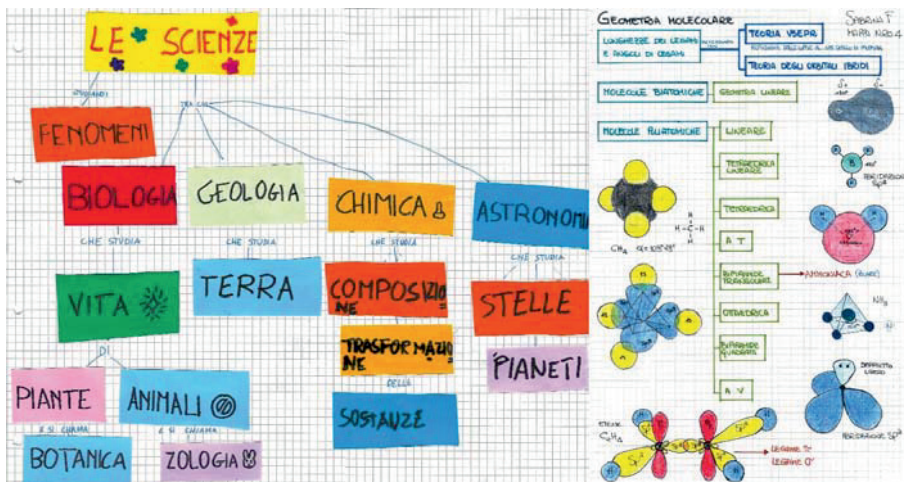 LE SCIENZE
STUDIANO
TRA CUI
FENOMENI
BIOLOGIA
GEOLOGIA
CHIMICA
ASTRONOMIA
CHE STUDIA
CHE STUDIA
CHE STUDIA
CHE STUDIA
VITA
TERRA
COMPOSIZIO
NE
STELLE
TRASFORMAZIO
NE
PIANETI
DI
DELLA
PIANTE
ANIMALI
SOSTANZE
E SI CHIAMA
E SI CHIAMA
BOTANICA
ZOLOGIA
GEOMETRIA MOLECOLARE
SABRINA F
MAPPA NRO.4
LUNGHEZZE DEI LEGAMI
E ANGOLI DI LEGAMI
TEORIA VSEPR
TEORIA DEGLI ORBITALI IBRIDI
MOLECOLE BIATOMICHE
GEOMETRIA LINEARE
MOLECOLE PLIATOMICHE
LINEARE
TETRAEDRICA
AT
CH4
H
H-C-H
H
BIPIRAMIDE
TRIANGOLARE
AMMONIACA
OTTAEDRICA
NH3
BIPIRAMIDE
QUADRATA
AV
DOPPIETTO
LIBERO
IBRIDAZIONE SP3
C2H4
LEGAME π
LEGAME σ